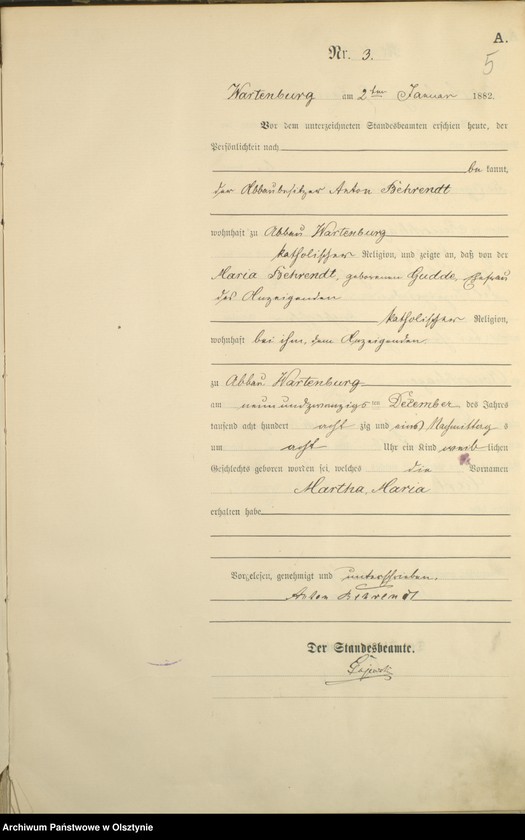 A.
Nr. 3.
5
Wartenburg am 2ten Januar 1882.
Vor dem unterzeichneten Standesbeamten erschien heute, der
Persönlichkeit nach
be kannt,
der Abbaubesitzer Anton Behrendt
wohnhaft zu Abbau Wartenburg
katholischer Religion, und zeigte an, daß von der
Maria Behrendt, geborenen Gudde, Ehefrau
des Anzeigenden
katholischer Religion,
wohnhaft bei ihm, dem Anzeigenden
zu Abbau Wartenburg
am neunundzwanzigsten December des Jahres
tausend acht hundert acht zig und eins Nachmittag s
um acht Uhr ein Kind weib lichen
Geschlechts geboren worden sei, welches die Vornamen
Martha, Maria
erhalten habe
Vorgelesen, genehmigt und unterschrieben.
Anton Behrendt
Der Standesbeamte.
Archiwum Państwowe w Olsztynie